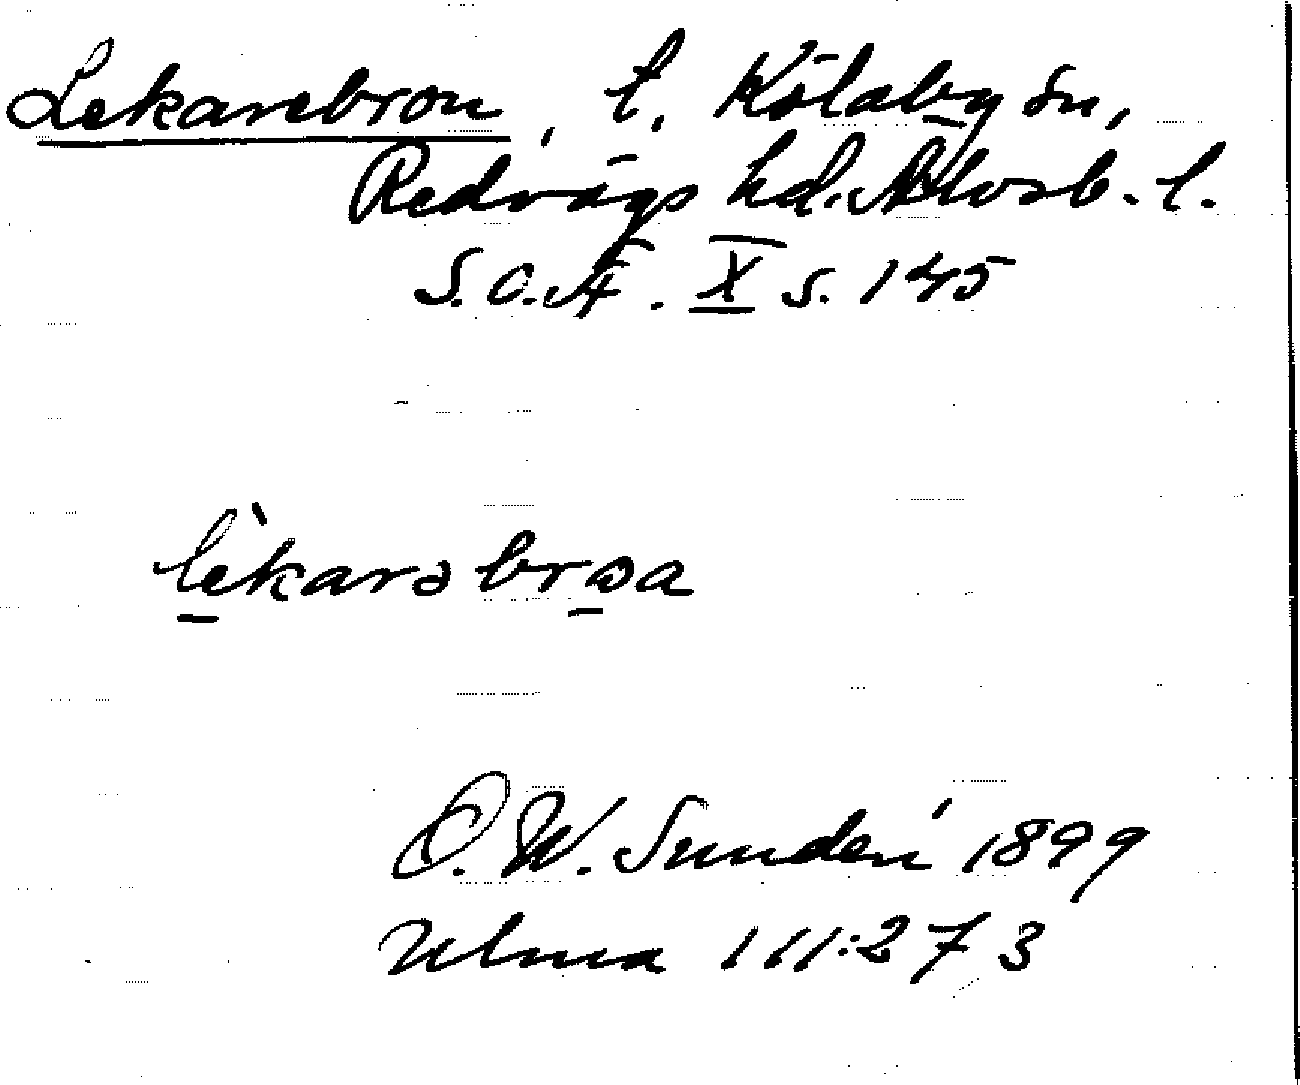 Lekarebron, t. Kölaby sn,
Redvägs hd. Älvsb. l.
S.O.Ä. X s. 145
lèkarəbrωa
O. W. Sundén 1899
Ulma 111:273